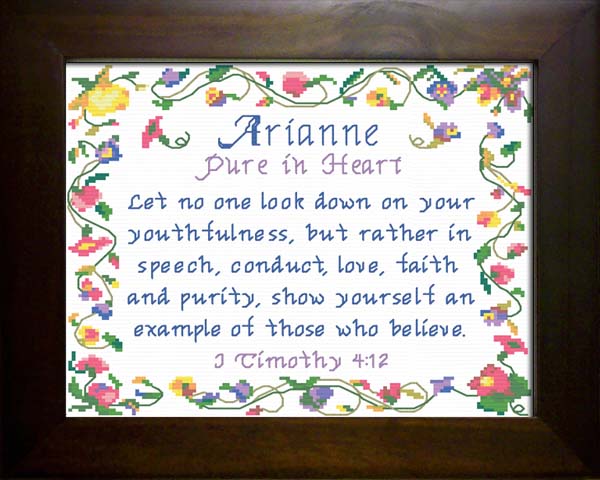 Arianne
Pure in Heart
Let no one look down on your
youthfulness, but rather in
speech, conduct, love, faith
and purity, show yourself an
example of those who believe.
I Timothy 4:12